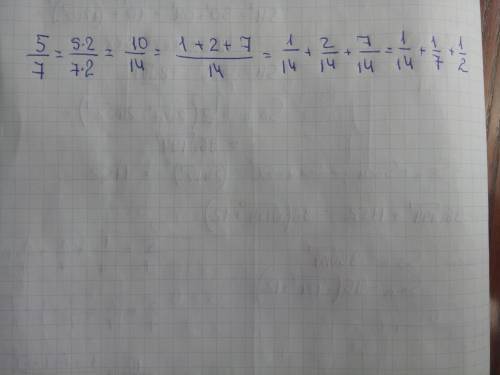 5/7 = 5·2/7·2 = 10/14 = 1+2+7/14 = 1/14 + 2/14 + 7/14 = 1/14 + 1/7 + 1/2